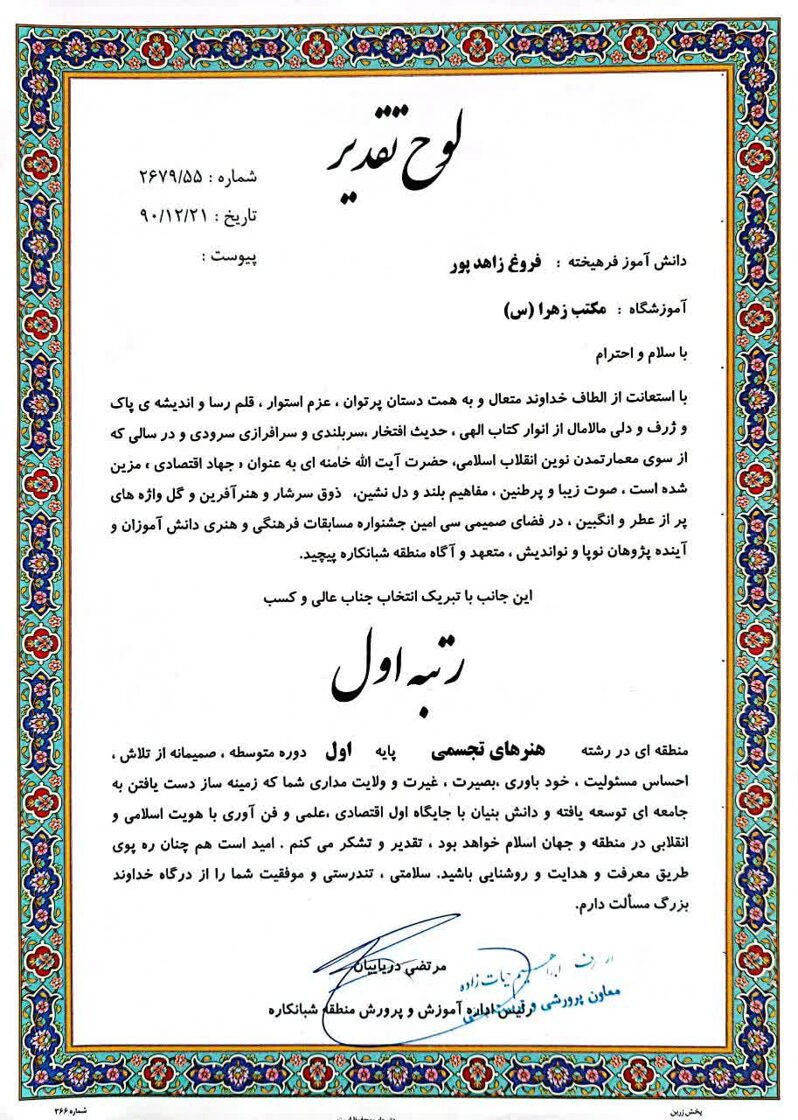 لوح تقدیر
شماره : ۲۶۷۹/۵۵
تاریخ : ۹۰/۱۲/۲۱
پیوست :
دانش آموز فرهیخته : فروغ زاهدپور
آموزشگاه : مکتب زهرا (س)
با سلام و احترام
با استعانت از الطاف خداوند متعال و به همت دستان پرتوان ، عزم استوار ، قلم رسا و اندیشه ی پاک
و ژرف و دلی مالامال از انوار کتاب الهی ، حدیث افتخار ،سربلندی و سرافرازی سرودی و در سالی که
از سوی معمارتمدن نوین انقلاب اسلامی، حضرت آیت الله خامنه ای به عنوان « جهاد اقتصادی » مزین
شده است ، صوت زیبا و پرطنین ، مفاهیم بلند و دل نشین، ذوق سرشار و هنرآفرین و گل واژه های
پر از عطر و انگبین ، در فضای صمیمی سی امین جشنواره مسابقات فرهنگی و هنری دانش آموزان و
آینده پژوهان نوپا و نواندیش ، متعهد و آگاه منطقه شبانکاره پیچید.
این جانب با تبریک انتخاب جناب عالی و کسب
رتبه اول
منطقه ای در رشته هنرهای تجسمی پایه اول دوره متوسطه ، صمیمانه از تلاش ،
احساس مسئولیت ، خود باوری ،بصیرت ، غیرت و ولایت مداری شما که زمینه ساز دست یافتن به
جامعه ای توسعه یافته و دانش بنیان با جایگاه اول اقتصادی ،علمی و فن آوری با هویت اسلامی و
انقلابی در منطقه و جهان اسلام خواهد بود ، تقدیر و تشکر می کنم . امید است هم چنان ره پوی
طریق معرفت و هدایت و روشنایی باشید. سلامتی ، تندرستی و موفقیت شما را از درگاه خداوند
بزرگ مسألت دارم.
مرتضی دریاییان
رئیس اداره آموزش و پرورش منطقه شبانکاره
از طرف ابراهیم حیات زاده
معاون پرورشی و
پخش زرین
شماره ۲۶۶